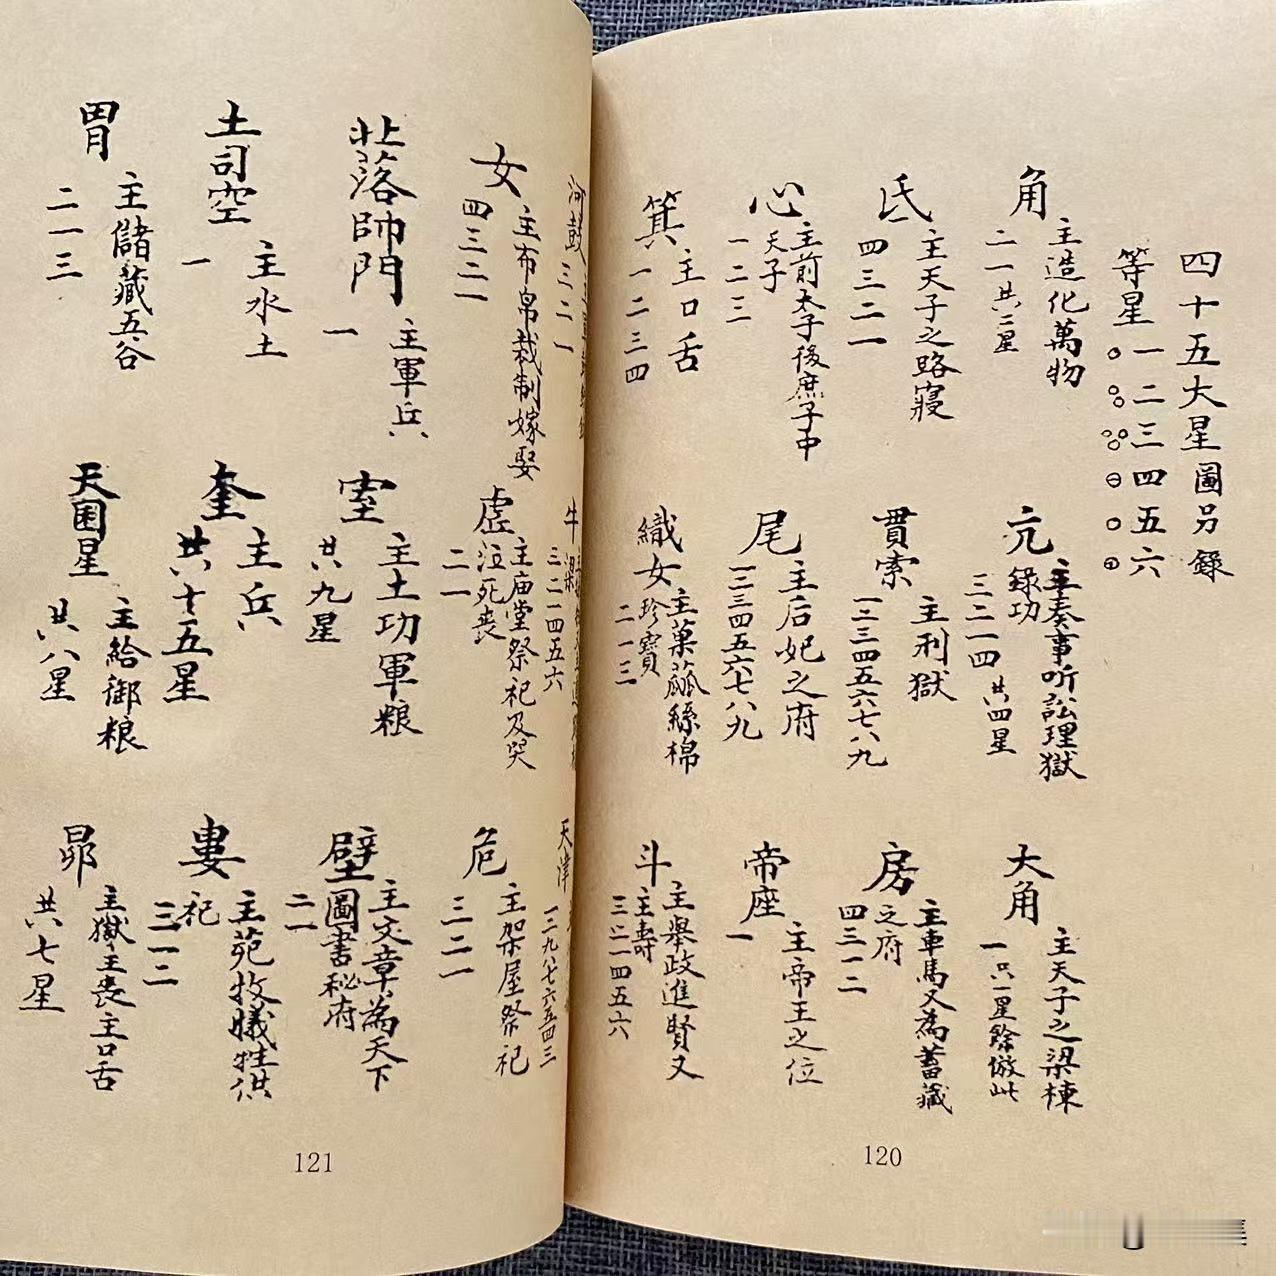 四十五大星圖另錄
等星一二三四五六
角
主造化萬物
二一共二星
亢
主奏事听訟理獄
錄功
三二一四 共四星
大角
主天子之梁棟
一 只一星餘倣此
氐
主天子之路寢
四三二一
貫索
主刑獄
一二三四五六七八九
房
主車馬又為蓄藏
之府
四三一二
心
主前太子後庶子中
天子
一二三
尾
主后妃之府
一二三四五六七八九
帝座
主帝王之位
一
箕
主口舌
一二三四
織女
主菓蓏絲棉
珍寶
二一三
斗
主舉政進賢又
主壽
三二一四五六
120
河鼓
三二一
牛
三二一四五六
天津
一二九八七六五四三
女
主布帛裁制嫁娶
四三二一
虛
主庙堂祭祀及哭
泣死喪
二一
危
主架屋祭祀
三二一
北落師門
主軍兵
一
室
主土功軍粮
共九星
壁
主文章為天下
圖書秘府
二一
土司空
主水土
一
奎
主兵
共十五星
婁
主苑牧犧牲供
祀
三一二
胃
主儲藏五谷
二一三
天囷星
主給御粮
共八星
昴
主獄主喪主口舌
共七星
121